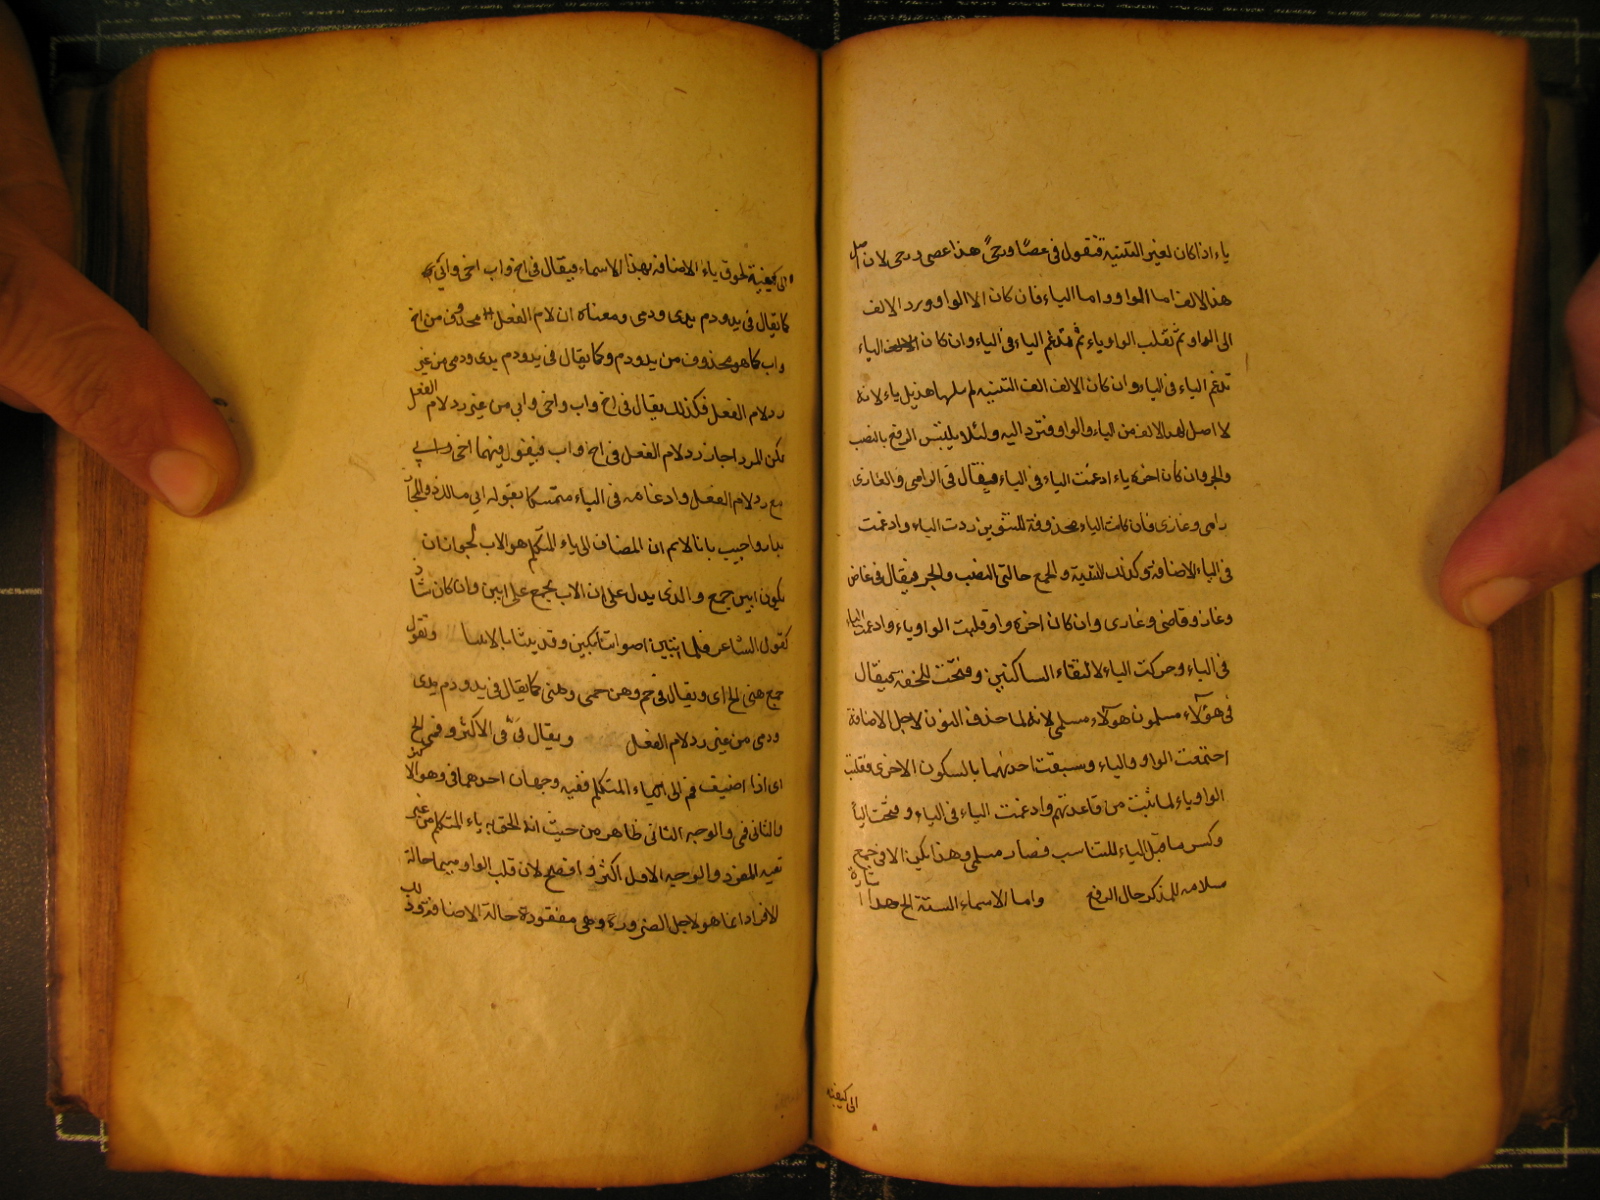 ياء اذا كان لغير التثنية فتقول في عصًا ورحًى هذا عصى ورحى لان اصل
هذا الالف اما الواو واما الياء فان كان الواو ورد الالف
الى الواو ثم تقلب الواو ياء ثم تدغم الياء في الياء وان كان الياء
تدغم الياء في الياء وان كان الالف الف التثنية لم هذيل ياء لانه
لا اصل لهذا الالف من الياء والواو فترد اليه ولئلا يلتبس الرفع بالنصب
والجر وان كان اخره ياء ادغمت الياء في الياء فيقال في الرامى والغازى
رامى وغازى فان كانت الياء محذوفة للتنوين ردت الياء وادغمت
في الياء الاضافة وكذلك التثنية والجمع حالتى النصب والجر فيقال في قاض
وغاز وقاضى وغازى وان كان اخره واو قلبت الواو ياء وادغمت الياء
في الياء وحركت الياء لالتقاء الساكنين وفتحت للخفة فيقال
في هؤلاء مسلمون هؤلاء مسلمى لانه لما حذف النون لاجل الاضافة
اجتمعت الواو والياء وسبقت احديهما بالسكون الاخرى فقلبت
الواو ياء لما ثبت من قاعدتهم وادغمت الياء في الياء وفتحت الياء
وكسر ما قبل الياء للتناسب فصار مسلمى وهذا يكون الا في جمع
سلامه للمذكر حال الرفع واما الاسماء الستة الخ هذا اشارة
الى كيفية
الى كيفية لحوق ياء الاضافة بهذا الاسماء فيقال في اخ واب اخى وابى
كما يقال في يد ودم يدى ودمى ومعناه ان لام الفعل محذوف من اخ
واب كما هو محذوف من يد ودم وكما يقال في يد ودم يدى ودمى من غير
رد لام الفعل فكذلك يقال في اخ واب واخى وابى من غير رد لام الفعل
لكن المبرد اجاز رد لام الفعل في اخ واب فيقول فيهما اخى وابى
مع رد لام الفعل وادغامه في الياء متمسكا بقوله ابى مالك ذو المجاز
بدار واجيب بانا لا نم ان المضاف الى ياء المتكلم هو الاب لجواز ان
يكون ابين جمع والذى يدل على ان الاب يجمع على ابين وان كان شاذا
كقول الشاعر فلما تبين اصواتنا بكين وفديننا بالابينا وتقول
حمى هنى الخ اى ويقال في حم وهن حمى وهنى كما يقال في يد ودم يدى
ودمى من غير رد لام الفعل ويقال فىَّ في الاكثر وفمى الخ
اى اذا اضيف فم الى ياء المتكلم ففيه وجهان احدهما فى وهو الاكثر
والثانى فمى والوجه الثانى ظاهر من حيث انه الحق به ياء المتكلم من غير
تغيه المفرد والوجه الاول اكثر وافصح لان قلب الواو ميما حالة
الافراد انما هو لاجل الضرورة وهى مفقودة حالة الاضافة